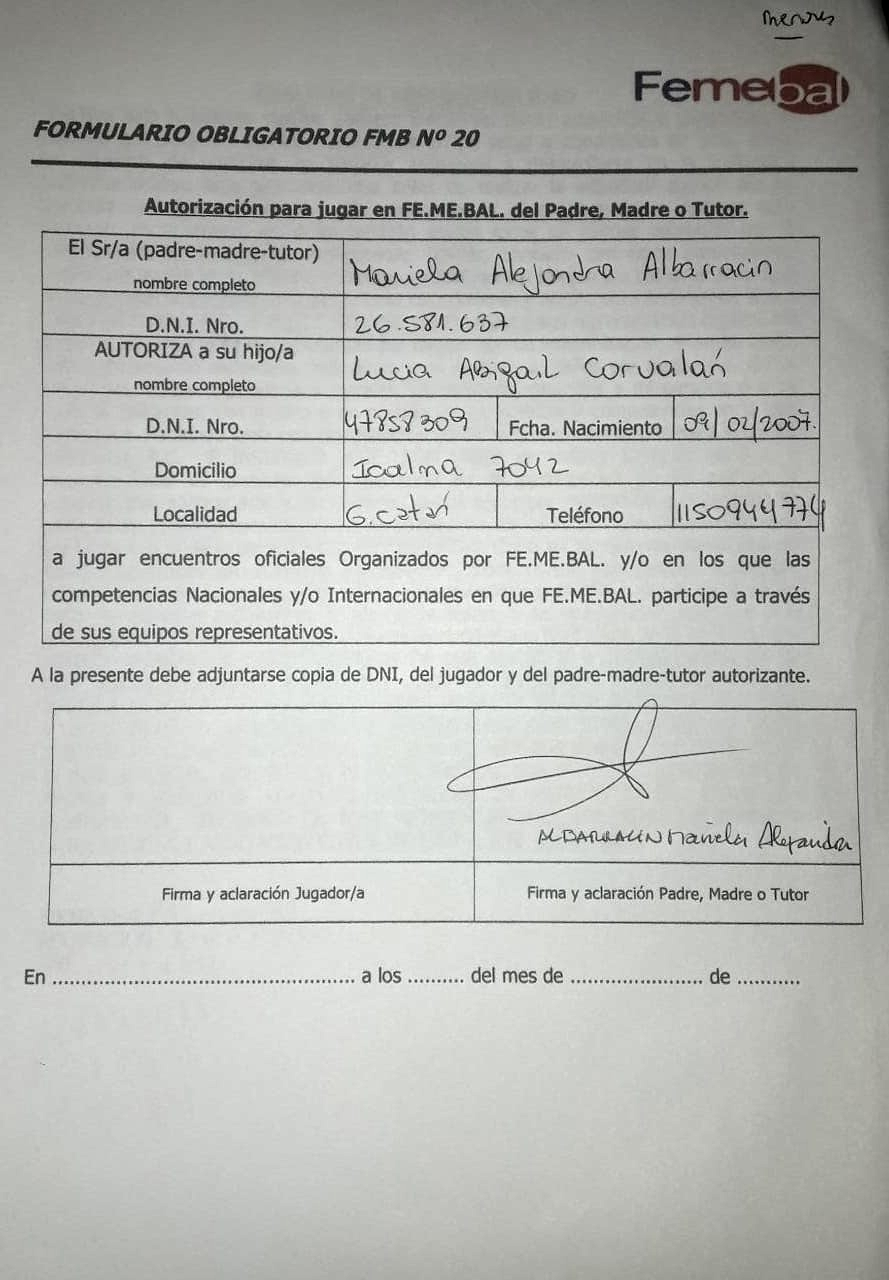 menores
Femebal
FORMULARIO OBLIGATORIO FMB Nº 20
Autorización para jugar en FE.ME.BAL. del Padre, Madre o Tutor.
El Sr/a (padre-madre-tutor) nombre completo Mariela Alejandra Albarracin
D.N.I. Nro. 26.581.637
AUTORIZA a su hijo/a nombre completo Lucia Abigail Corvalán
D.N.I. Nro. 47858309 Fcha. Nacimiento 09/02/2007.
Domicilio Icalma 7042
Localidad G. Catán Teléfono 1150944774
a jugar encuentros oficiales Organizados por FE.ME.BAL. y/o en los que las
competencias Nacionales y/o Internacionales en que FE.ME.BAL. participe a través
de sus equipos representativos.
A la presente debe adjuntarse copia de DNI, del jugador y del padre-madre-tutor autorizante.
ALBARRACIN Mariela Alejandra
Firma y aclaración Jugador/a Firma y aclaración Padre, Madre o Tutor
En ................................................... a los .......... del mes de ....................... de ...........